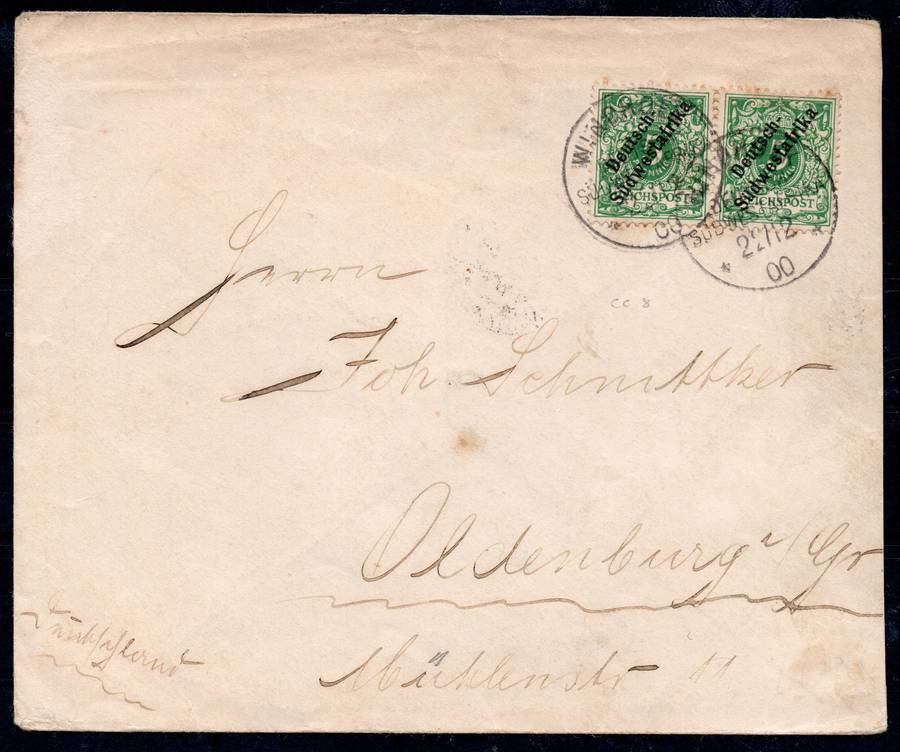 5
Deutsch-
Südwestafrika
REICHSPOST
Deutsch-
Südwestafrika
REICHSPOST
WINDHOEK
22/12
00
cc 8
Herrn
Joh Schnittker
Oldenburg i/Gr
Mühlenstr 11
Deutschland